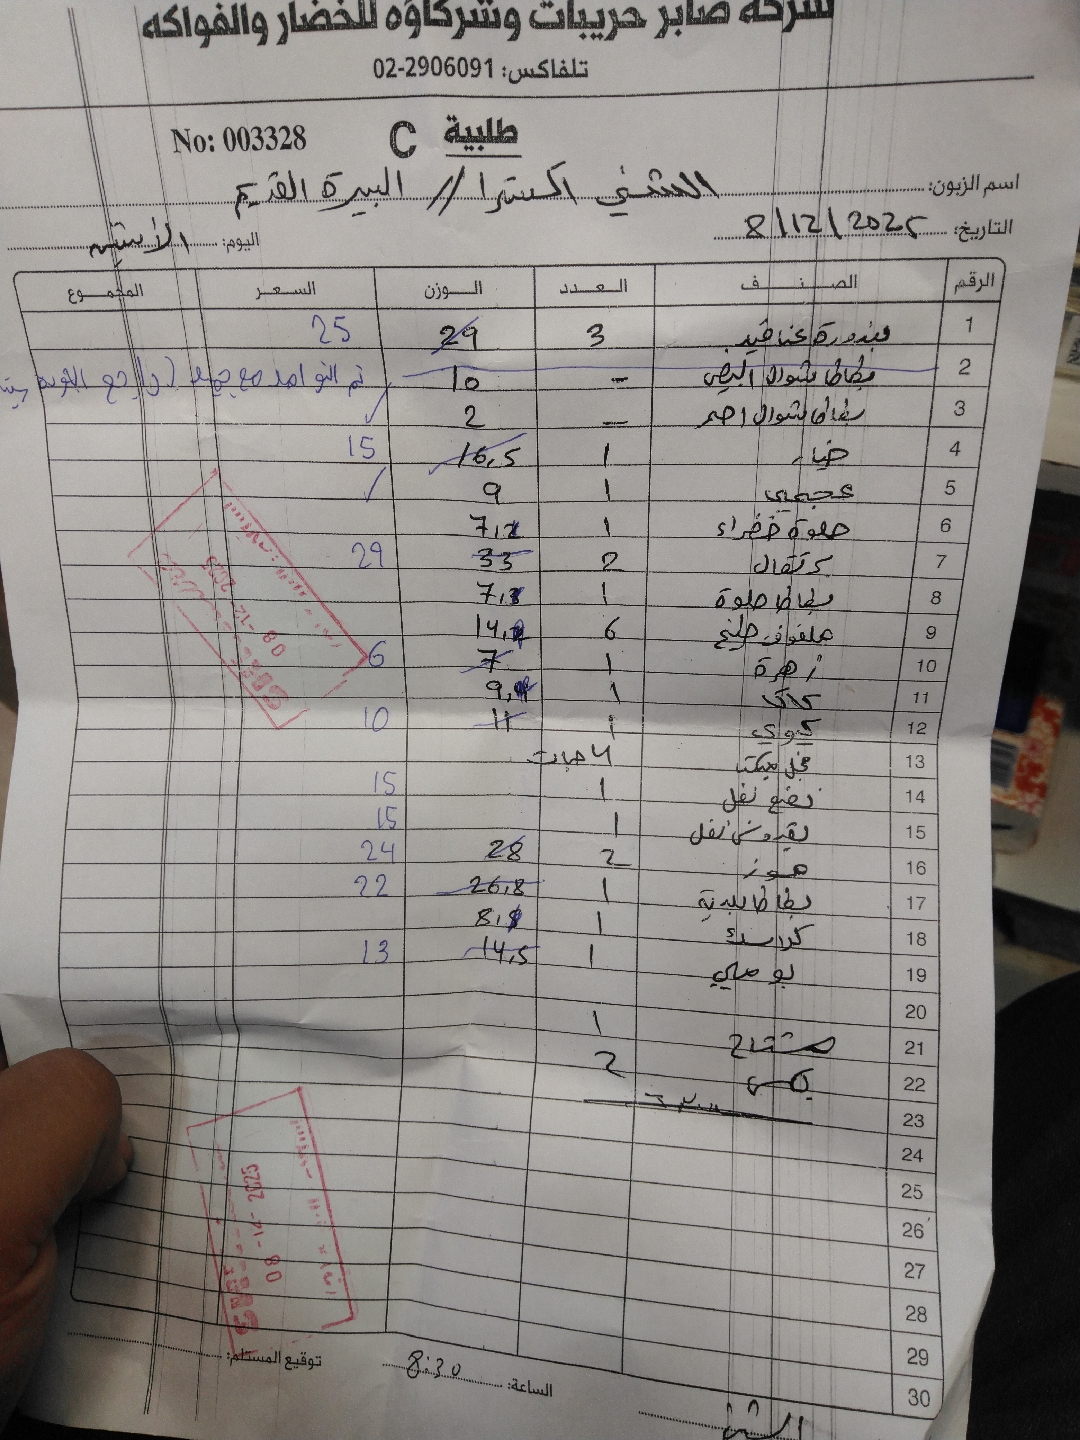 شركة صابر حريبات وشركاؤه للخضار والفواكه
تلفاكس: 02-2906091
طلبية C No: 003328
اسم الزبون: الشني اكسترا // البيرة القديم
التاريخ: 8/12/2025 اليوم: الاثنين
الرقم الصنف العدد الوزن السعر المجموع
1 بندورة عناقيد 3 29 25
2 بطاطا شوال ابيض - 10 تم التواصل مع
3 بطاطا شوال احمر - 2
4 خيار 1 16,5 15
5 عجمي 1 9
6 حلوة خضراء 1 7,2
7 برتقال 2 33 29
8 بطاطا حلوة 1 7,3
9 ملفوف 6 14,
10 زهرة 1 7 6
11 كاكا 1 9,
12 كيوي 1 11 10
13 فجل حبات
14 نعنع نفل 1 15
15 بقدونس نفل 1 15
16 موز 2 28 24
17 بطاطا بلدية 1 26,8 22
18 1 8,
19 بوملي 1 14,5 13
20
21 مشتاح 1
22 بكس 2
23
24
25
26
27
28
29
30
08-12-2025
08-12-2025
الساعة: 8:30 توقيع المستلم: